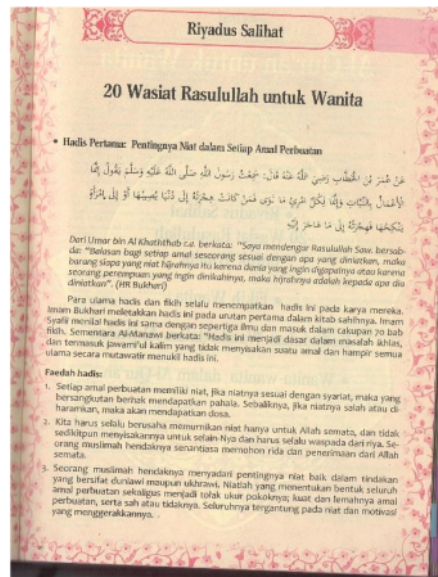 Riyadus Salihat
20 Wasiat Rasulullah untuk Wanita
• Hadis Pertama: Pentingnya Niat dalam Setiap Amal Perbuatan
عَنْ عُمَرَ بْنِ الْخَطَّابِ رَضِيَ اللَّهُ عَنْهُ قَالَ: سَمِعْتُ رَسُولَ اللَّهِ صَلَّى اللَّهُ عَلَيْهِ وَسَلَّمَ يَقُولُ إِنَّمَا
الْأَعْمَالُ بِالنِّيَّاتِ وَإِنَّمَا لِكُلِّ امْرِئٍ مَا نَوَى فَمَنْ كَانَتْ هِجْرَتُهُ إِلَى دُنْيَا يُصِيبُهَا أَوْ إِلَى امْرَأَةٍ
يَنْكِحُهَا فَهِجْرَتُهُ إِلَى مَا هَاجَرَ إِلَيْهِ
Dari Umar bin Al Khaththab r.a. berkata: "Saya mendengar Rasulullah Saw. bersab-
da: "Balasan bagi setiap amal seseorang sesuai dengan apa yang diniatkan, maka
barang siapa yang niat hijrahnya itu karena dunia yang ingin digapainya atau karena
seorang perempuan yang ingin dinikahinya, maka hijrahnya adalah kepada apa dia
diniatkan". (HR Bukhari)
Para ulama hadis dan fikih selalu menempatkan hadis ini pada karya mereka.
Imam Bukhari meletakkan hadis ini pada urutan pertama dalam kitab sahihnya. Imam
Syafii menilai hadis ini sama dengan sepertiga ilmu dan masuk dalam cakupan 70 bab
fikih. Sementara Al-Manawi berkata: "Hadis ini menjadi dasar dalam masalah ikhlas,
dan termasuk jawami'ul kalim yang tidak menyisakan suatu amal dan hampir semua
ulama secara mutawatir menukil hadis ini.
Faedah hadis:
1. Setiap amal perbuatan memiliki niat, jika niatnya sesuai dengan syariat, maka yang
bersangkutan berhak mendapatkan pahala. Sebaliknya, jika niatnya salah atau di-
haramkan, maka akan mendapatkan dosa.
2. Kita harus selalu berusaha memurnikan niat hanya untuk Allah semata, dan tidak
sedikitpun menyisakannya untuk selain-Nya dan harus selalu waspada dari riya. Se-
orang muslimah hendaknya senantiasa memohon rida dan penerimaan dari Allah
semata.
3. Seorang muslimah hendaknya menyadari pentingnya niat baik dalam tindakan
yang bersifat duniawi maupun ukhrawi. Niatlah yang menentukan bentuk seluruh
amal perbuatan sekaligus menjadi tolak ukur pokoknya; kuat dan lemahnya amal
perbuatan, serta sah atau tidaknya. Seluruhnya tergantung pada niat dan motivasi
yang menggerakkannya.